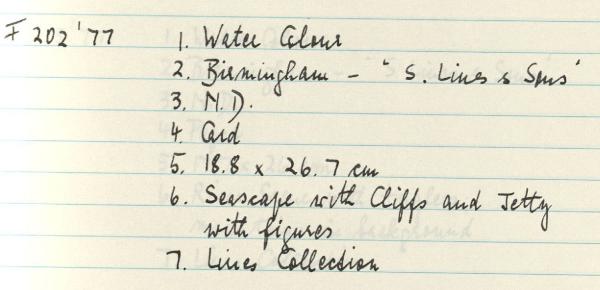 F 202 '77 1. Water Colour
2. Birmingham – "S. Lines & Sons"
3. N.D.
4. Card
5. 18.8 x 26.7 cm
6. Seascape with Cliffs and Jetty
with figures
7. Lines Collection